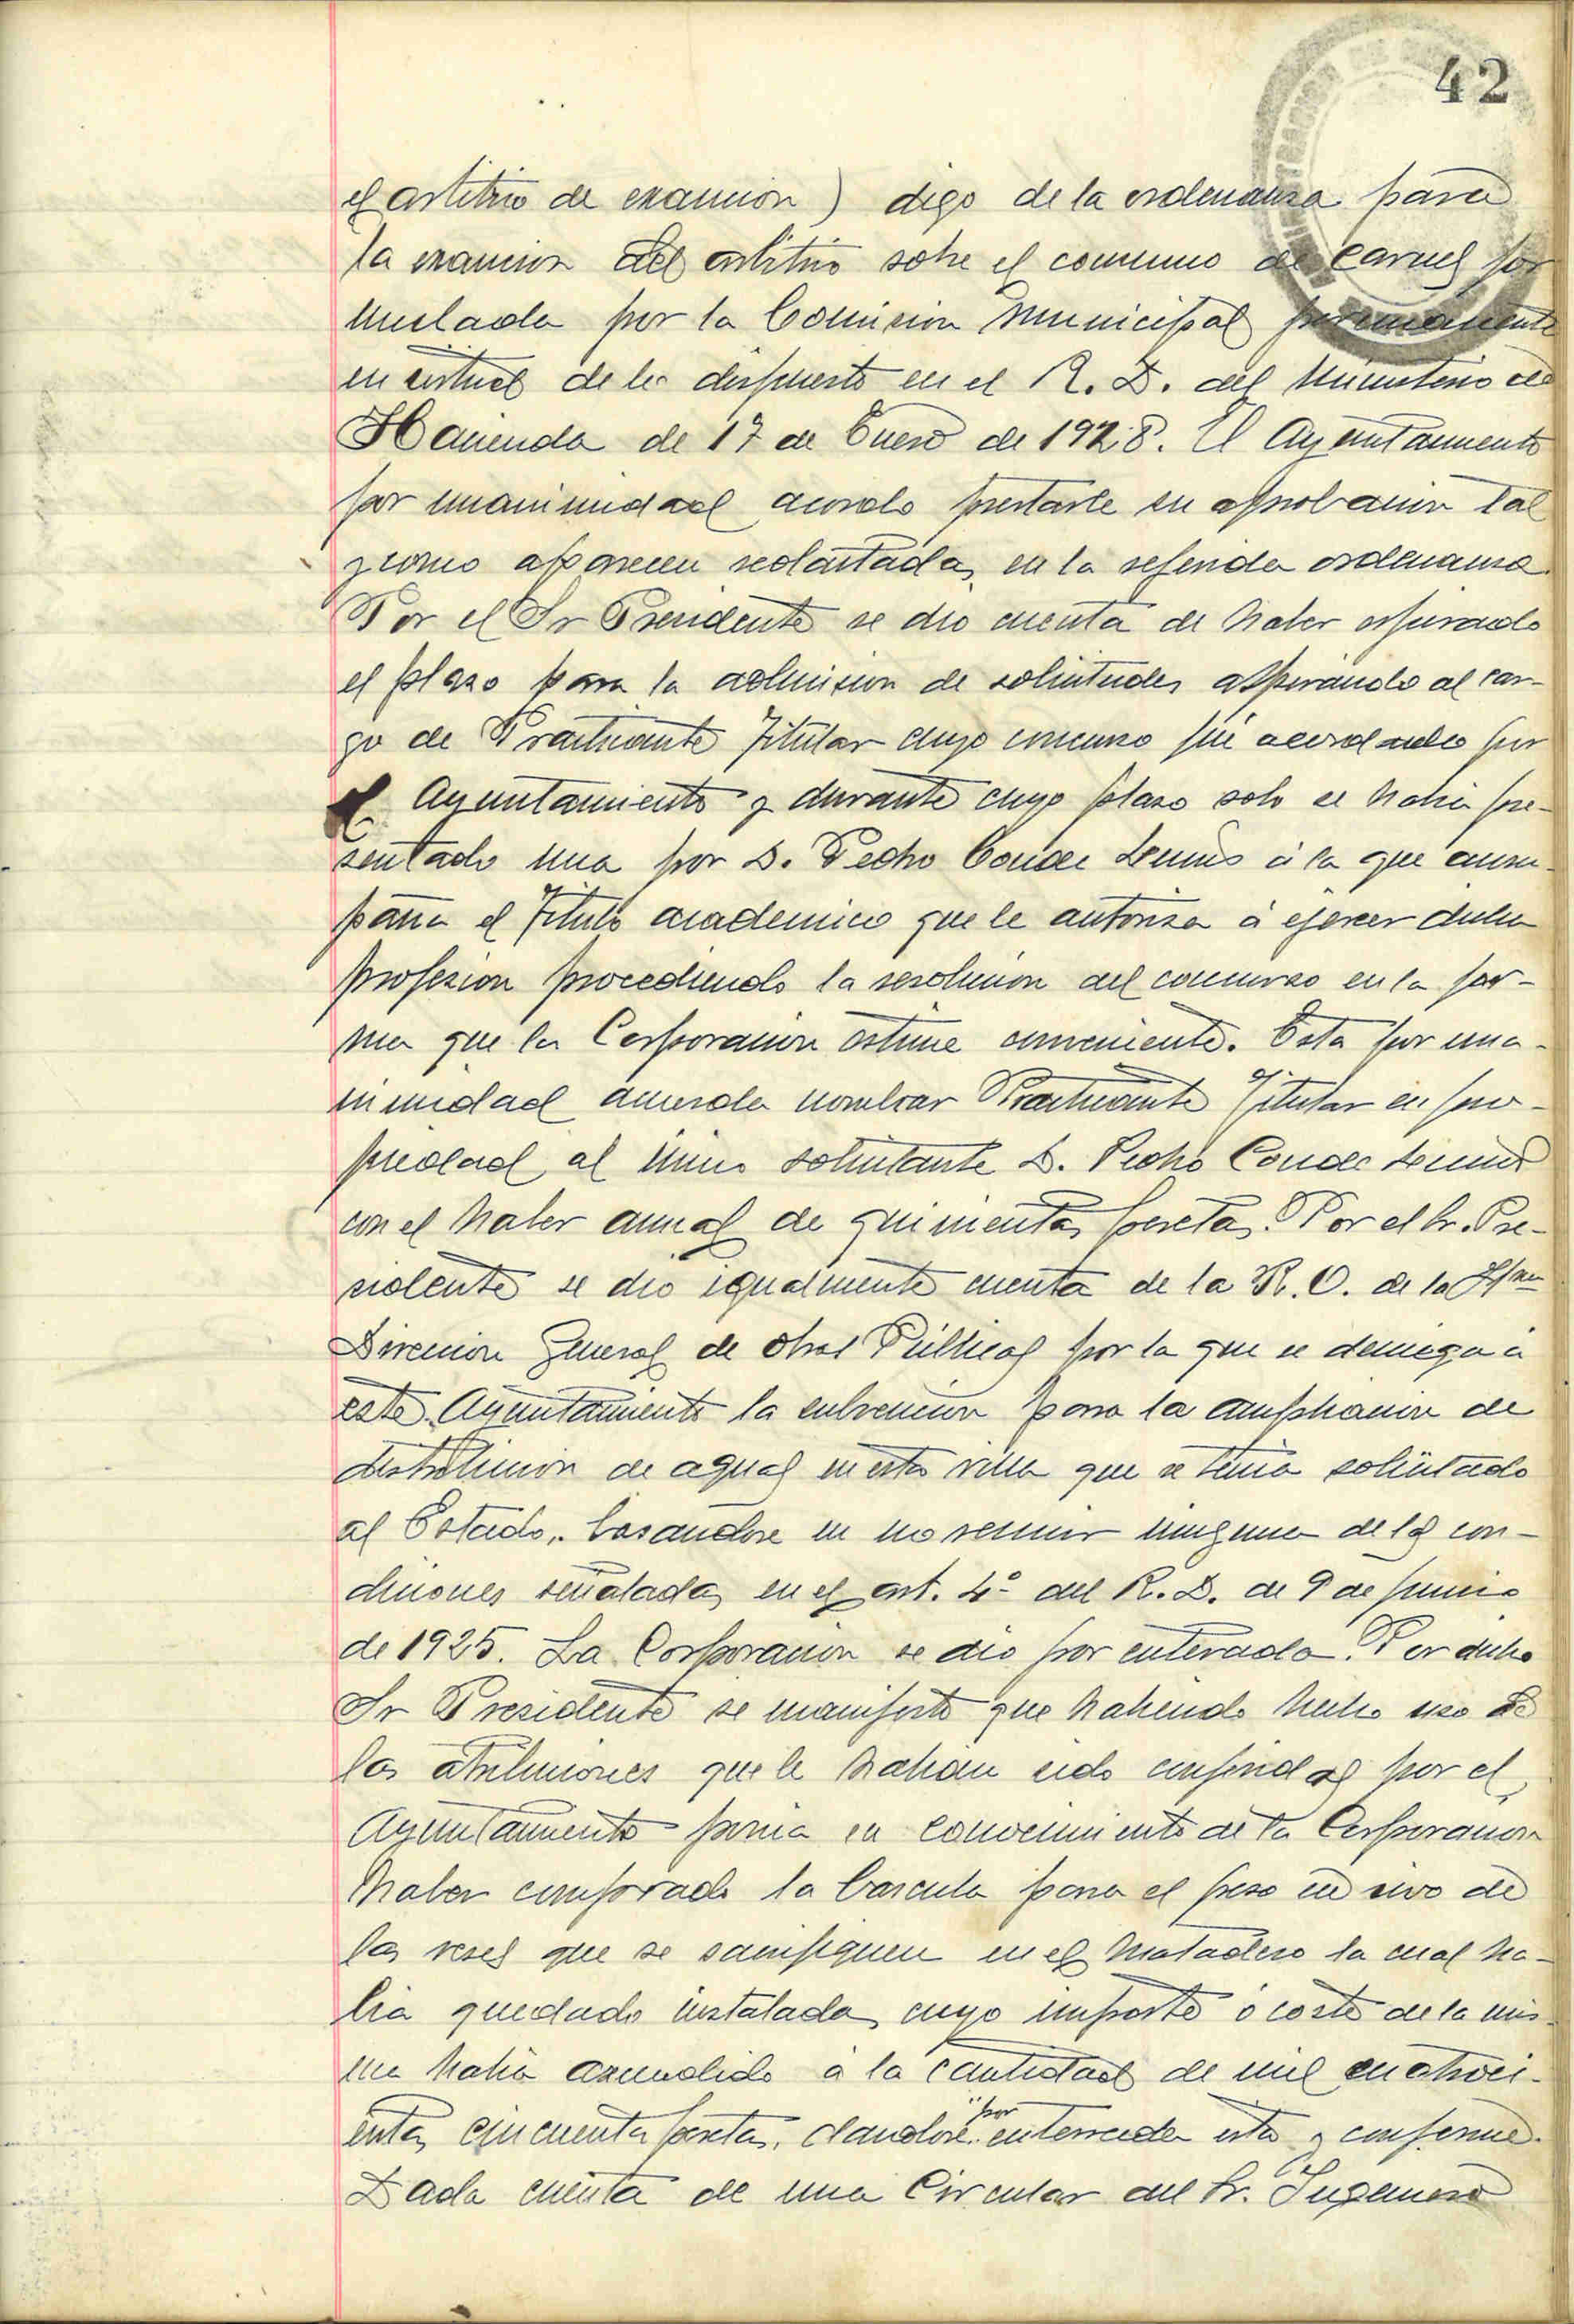 42
el arbitrio de exancion) digo de la ordenanza para
la exancion del arbitrio sobre el consumo de Carnes for
mulada por la Comision municipal permanente
en virtud de lo dispuesto en el R. D. del Ministerio de
Hacienda de 17 de Enero de 1928. El Ayuntamiento
por unanimidad acordo prestarle su aprobacion tal
y como aparecen redactadas en la referida ordenanza.
Por el Sr Presidente se dio cuenta de haber espirado
el plazo para la admision de solicitudes aspirando al car-
go de Practicante Titular cuyo concurso fué acordado por
el Ayuntamiento y durante cuyo plazo solo se habia pre-
sentado una por D. Pedro Conde á la que acom-
paña el Titulo academico que le autoriza á ejercer dicha
profesion procediendo la resolucion del concurso en la for-
ma que la Corporacion estime conveniente. Esta por una-
nimidad acuerda nombrar Practicante Titular en pro-
piedad al único solicitante D. Pedro Conde
con el haber anual de quinientas pesetas. Por el Sr. Pre-
sidente se dio igualmente cuenta de la R. O. de la
Direccion General de Obras Públicas por la que se deniega á
este Ayuntamiento la subvencion para la ampliacion de
distribucion de aguas en esta villa que se tenia solicitado
al Estado, basandose en no reunir ninguna de las con-
diciones señaladas en el art. 4º del R. D. de 9 de Junio
de 1925. La Corporacion se dio por enterada. Por dicho
Sr Presidente se manifesto que habiendo hecho uso de
las atribuciones que le habian sido conferidas por el
Ayuntamiento ponia en conocimiento de la Corporacion
haber comprado la bascula para el peso en vivo de
las reses que se sacrifiquen en el Matadero la cual ha-
bia quedado instalada, cuyo importe ó coste de la mis-
ma habia ascendido á la cantidad de mil cuatroci-
entas cincuenta pesetas, dandose "por enterada esta y conforme.
Dada cuenta de una Circular del Sr. Ingeniero